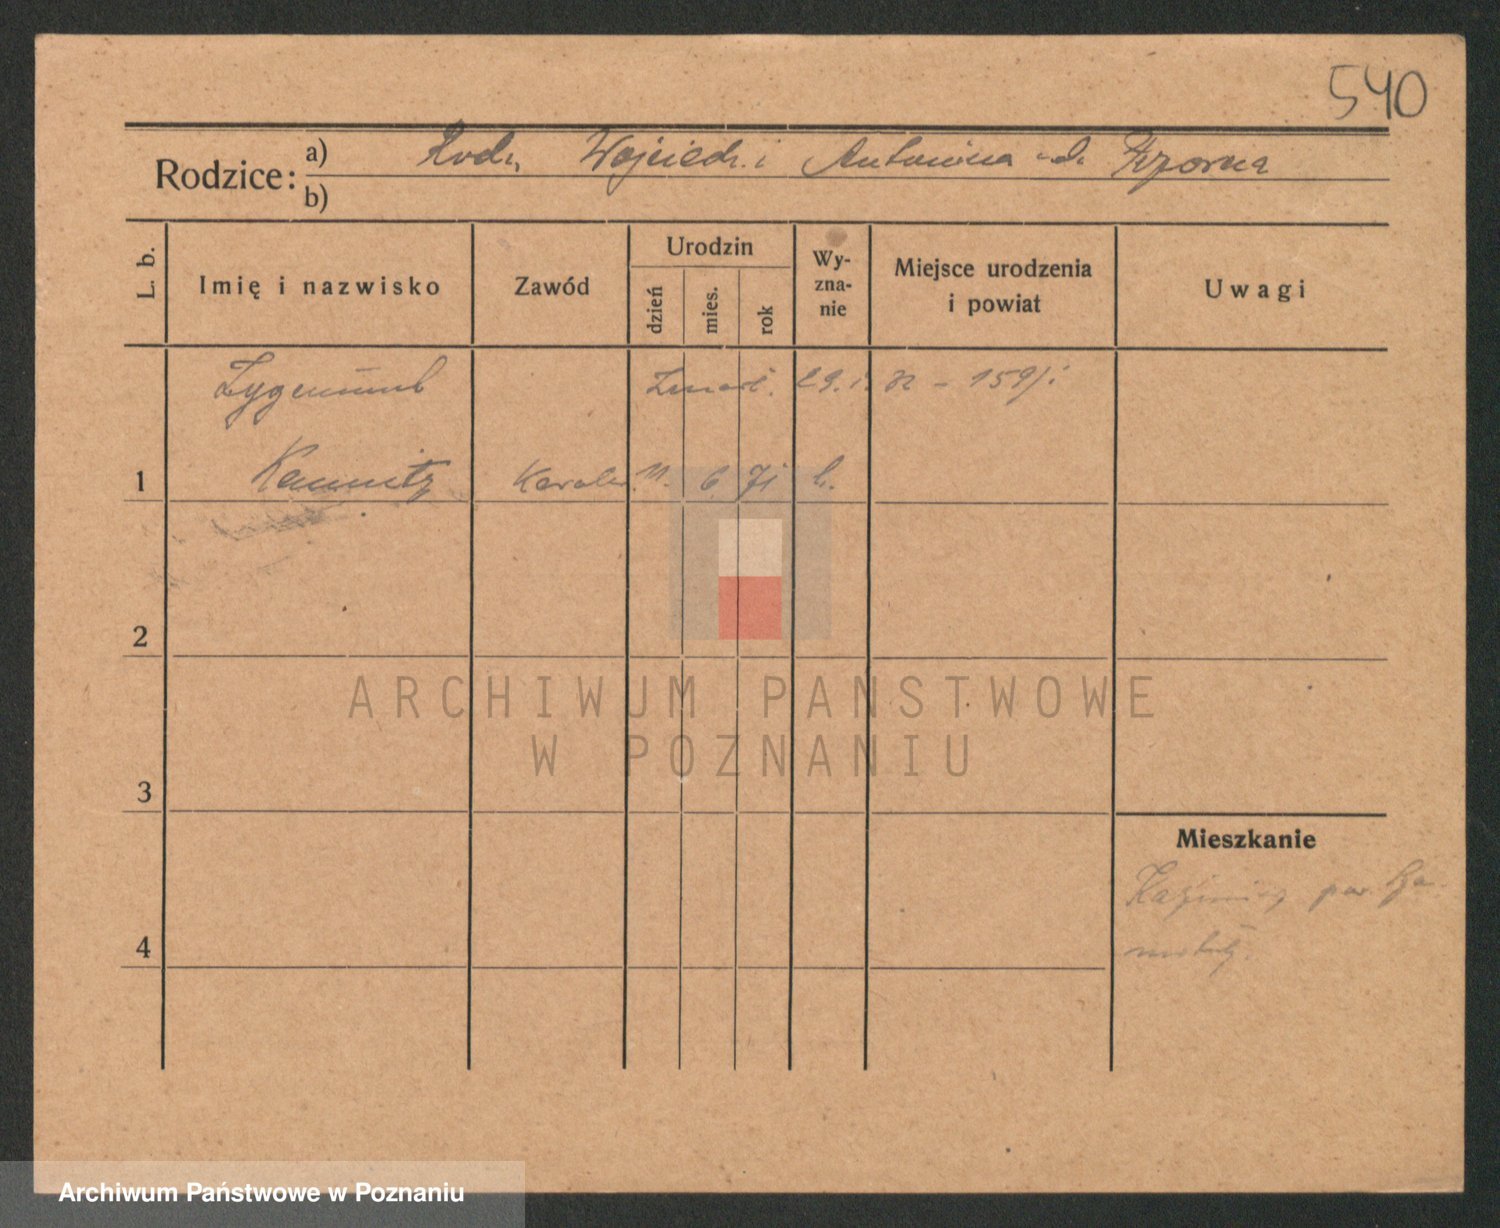 540
Rodzice: a) Rodz. Wojciech i Antonina
b)
L. b.
Imię i nazwisko
Zawód
Urodzin
dzień
mies.
rok
Wy-
zna-
nie
Miejsce urodzenia
i powiat
Uwagi
Zygmunt
Zmarł. 29. 1. 32 - 159/i
1 Kaunitz 11. 6. 71 k.
2
3
4
ARCHIWUM PAŃSTWOWE
W POZNANIU
Mieszkanie
Kaźmierz pow. Sza-
motuły.
Archiwum Państwowe w Poznaniu